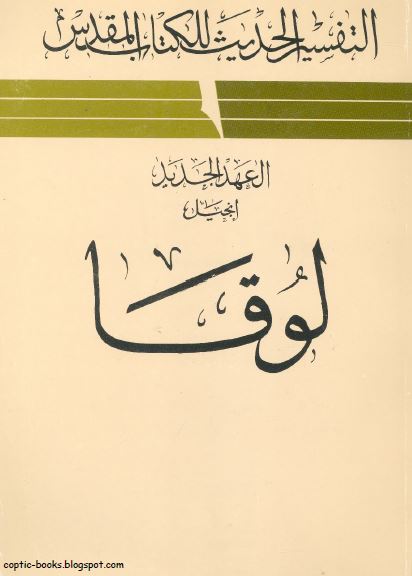 التفسير الحديث للكتاب المقدس
العهد الجديد
إنجيل
لوقا
coptic-books.blogspot.com